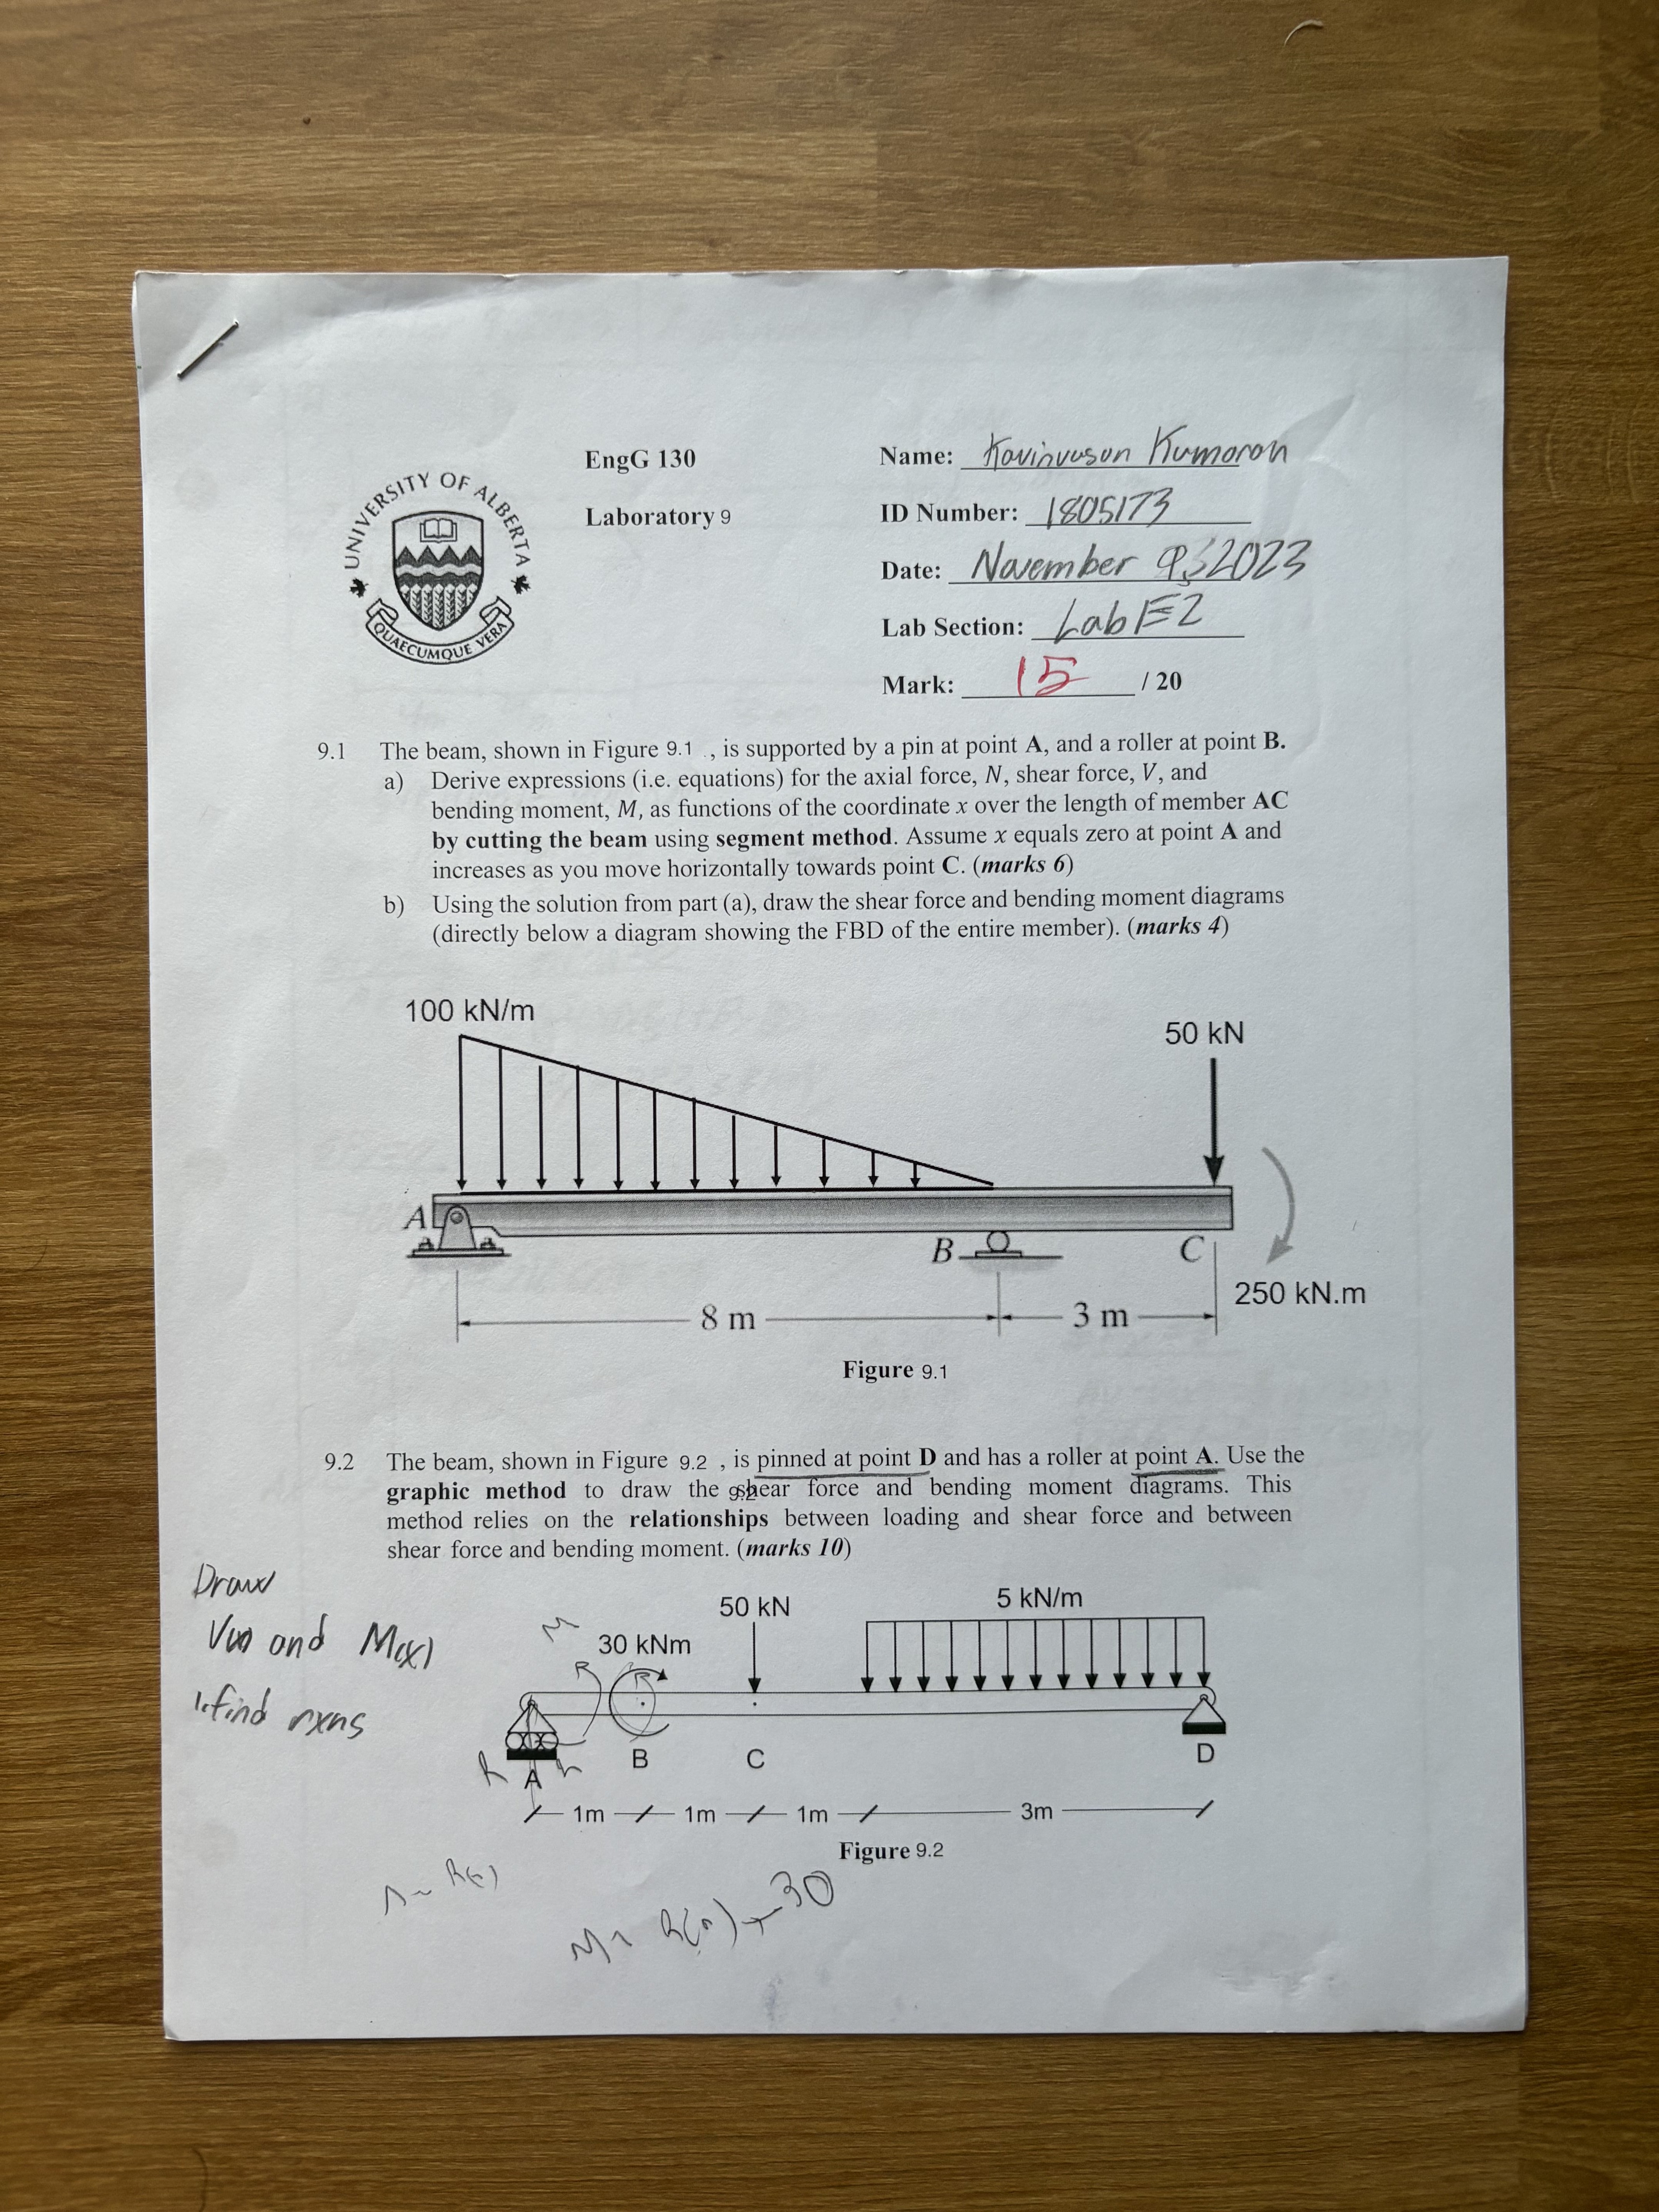 UNIVERSITY OF ALBERTA
QUAECUMQUE VERA
EngG 130
Laboratory 9
Name: Kavinvasan Kumaran
ID Number: 1805173
Date: November 9, 2023
Lab Section: Lab E2
Mark: 15 / 20
9.1 The beam, shown in Figure 9.1 , is supported by a pin at point A, and a roller at point B.
a) Derive expressions (i.e. equations) for the axial force, N, shear force, V, and
bending moment, M, as functions of the coordinate x over the length of member AC
by cutting the beam using segment method. Assume x equals zero at point A and
increases as you move horizontally towards point C. (marks 6)
b) Using the solution from part (a), draw the shear force and bending moment diagrams
(directly below a diagram showing the FBD of the entire member). (marks 4)
100 kN/m
50 kN
A
B
C
250 kN.m
8 m
3 m
Figure 9.1
9.2 The beam, shown in Figure 9.2 , is pinned at point D and has a roller at point A. Use the
graphic method to draw the shear force and bending moment diagrams. This
9.2
method relies on the relationships between loading and shear force and between
shear force and bending moment. (marks 10)
Draw
V(x) and M(x)
1. find rxns
50 kN
5 kN/m
M
30 kNm
R
A
B
C
D
1m
1m
1m
3m
Figure 9.2